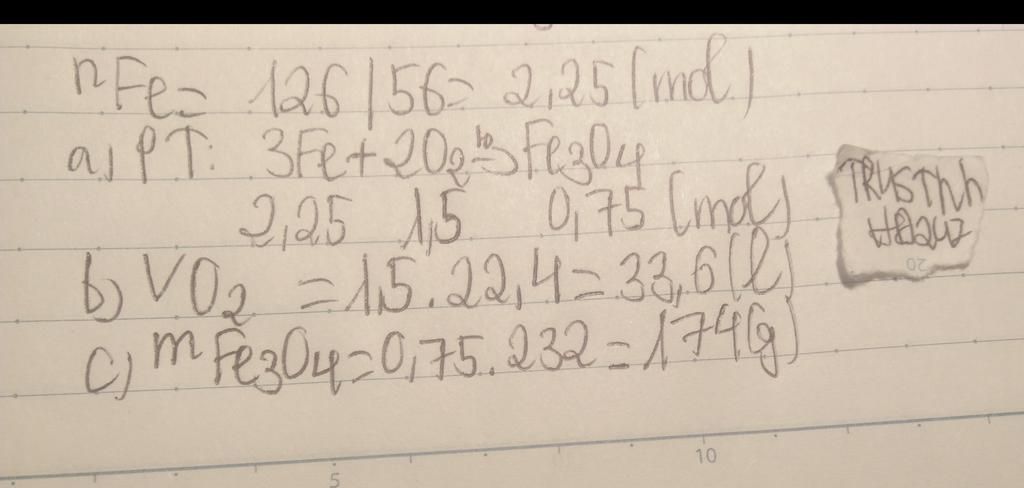 nFe= 126/56= 2,25 (mol)
a) PT: 3Fe+2O2 to→ Fe3O4
2,25 1,5 0,75 (mol)
b) VO2 = 1,5.22,4=33,6(l)
c) mFe3O4=0,75.232=174(g)
5
10
20